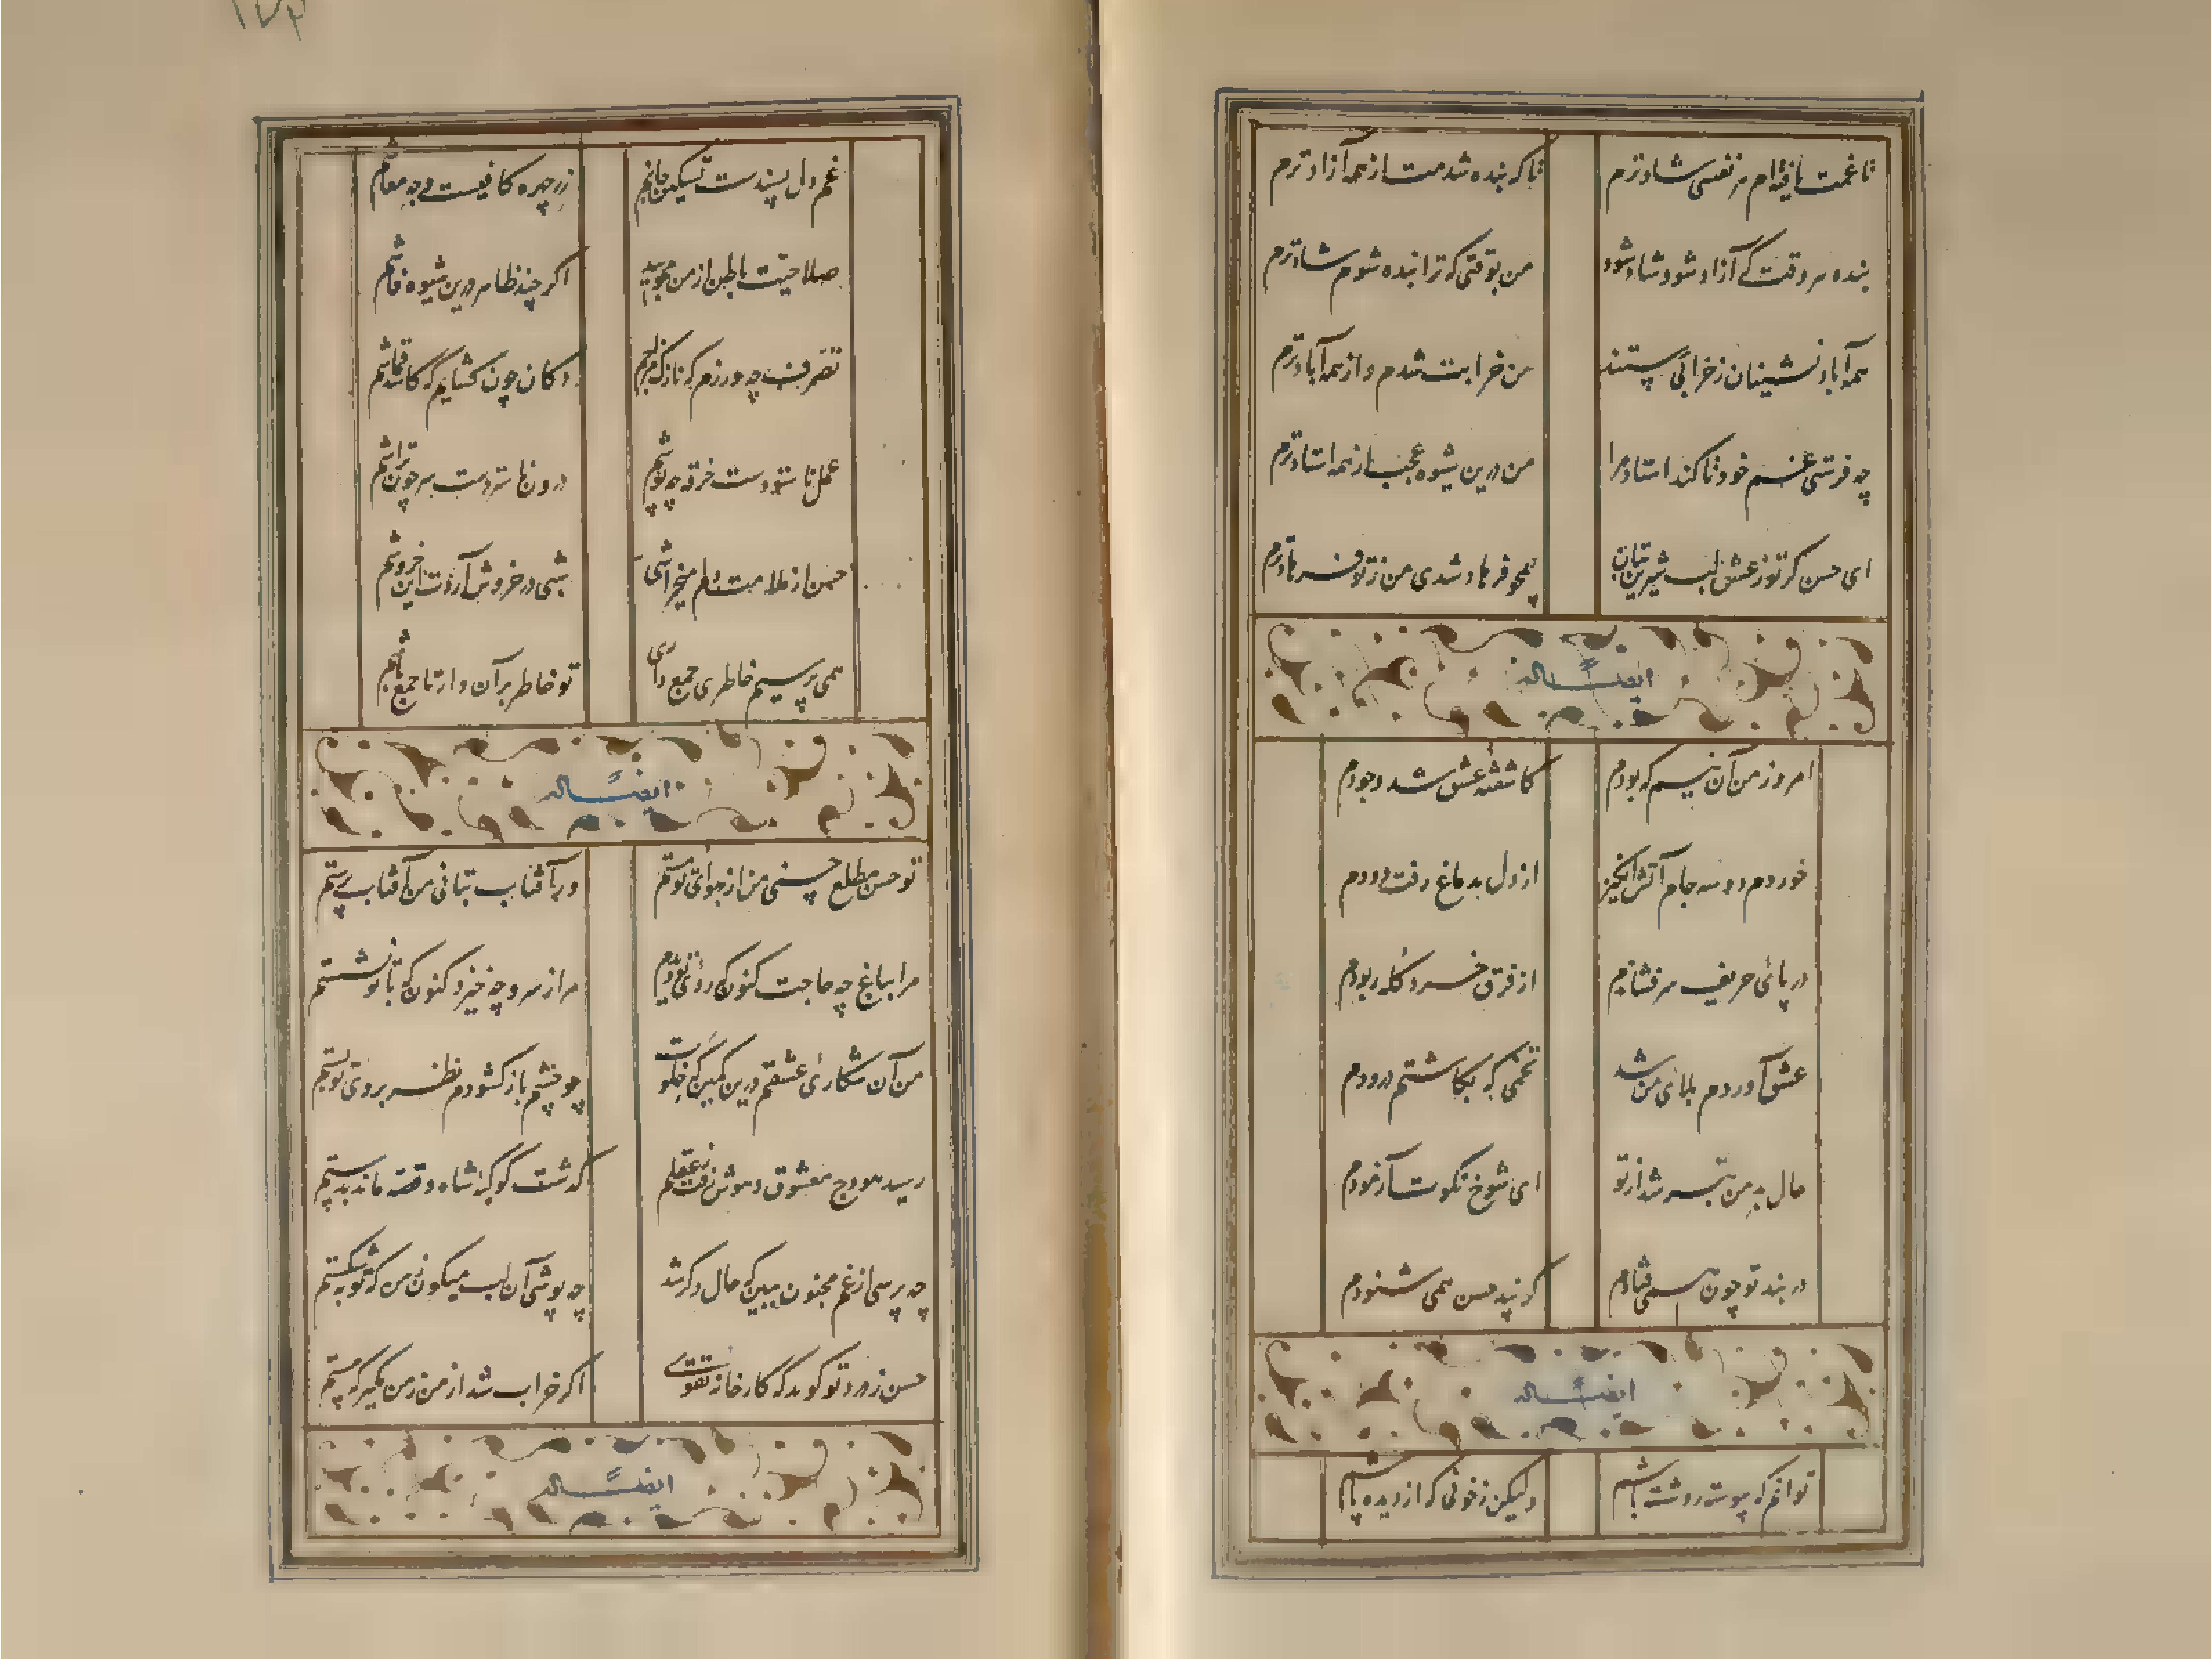 تا غمت یافته‌ام هر نفسی شادترم تا که بنده شدمت از همه آزادترم
بنده هر وقت که آزاد شود شاد شود من بوقتی که ترا بنده شوم شادترم
همه آبادنشینان ز خرابی پستند من خرابت شدم و از همه آبادترم
چه فرستی غم خود تا کند استاد مرا من درین شیوه عجب از همه استادترم
ای حسن گر تو ز عشق لب شیرین بتان همچو فرهاد شدی من ز تو فرهادترم
ایضاً له
امروز من آن نیم که بودم کاشفتهٔ عشق شد وجودم
خوردم دو سه جام آتش‌انگیز از دل بدماغ رفت دودم
در پای حریف سر فشاندم از فرق خرد کله ربودم
عشق آوردم بلای من شد تخمی که بکاشتم درودم
حال بد من بتر شد از تو ای شوخ نکوت آزمودم
در بند تو چون حسن فتادم کز پند حسن همی شنودم
ایضاً له
توانم که پیوسته رویت باشم ولیکن ز خونی که از دیده پاشم
غم دل پسندست تسکین جانم زر چهره کافیست وجه معاشم
صلاحیت باطن از من مجویید اگر چند ظاهر درین شیوه فاشم
تصرف چه ورزم که نازک مزاجم دکان چون گشایم که کاسد قماشم
عمل ناستودست خرقه چه پوشم درون ناستردست سر چون تراشم
حسن از ملامت دلم میخراشی شبی در خروش آردت این خروشم
همی پرسیم خاطری جمع داری تو خاطر بر آن دار تا جمع باشم
ایضاً له
تو حسن مطلع حسنی من از هوای تو مستم ور آفتاب بتانی من آفتاب پرستم
مرا بباغ چه حاجت کنون که روی تو دیدم مرا ز سرو چه خیزد کنون که با تو نشستم
من آن شکاری عشقم درین کمین که خلوت چو چشم باز گشودم نظر بروی تو بستم
رسید هودج معشوق و هوش رفت ز عقلم گذشت کوکبهٔ شاه و قصه ماند بدستم
چه پرسی از غم مجنون ببین که حال دگر شد چه پوشی آن لب میگون ز من که توبه شکستم
حسن ز درد تو گوید که کارخانه تقوی اگر خراب شد از من ز من مگیر که مستم
ایضاً له